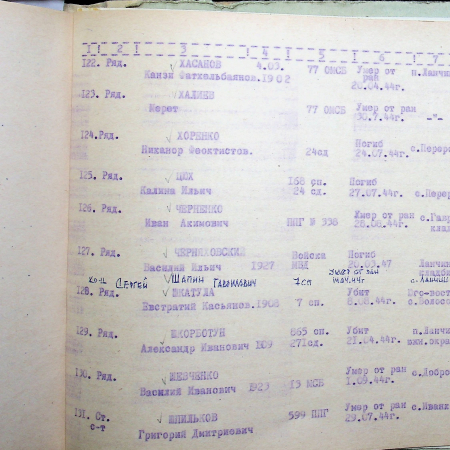 1 ! 2 ! 3 ! 4 ! 5 ! 6 ! 7
122. Ряд. ХАСАНОВ 4.03. 77 ОМСБ Умер от п.Ланчи
Фатхельбаянов.1902 ран
28.04.44г.
123. Ряд. ХАЛИЕВ
Мерет 77 ОМСБ Умер от ран
30.7.44г. -"-
124. Ряд. ХОРЕНКО Погиб
Никанор Феоктистов. 24сд 24.07.44г. с.Перер
125. Ряд. ЦЮХ 168 сп. Погиб
Калина Ильич 24 сд. 27.07.44г. с.Перер
126. Ряд. ЧЕРНЕНКО Умер от ран
Иван Акимович ППГ № 338 28.08.44г. клад
127. Ряд. ЧЕРНЯХОВСКИЙ Войска Погиб
Василий Ильич 1927 МВД 20.03.47 Ланчин
кладби
Сергей ШАПИН Гаврилович 7сп умер от ран с.Ланчин
128. Ряд. ШКАТУЛА Убит Юго-вост
Евстратий Касьянов.1908 7 сп. 8.08.44г.
129. Ряд. ШКОРБОТУН 665 сп. Убит п.Ланчи
Александр Иванович 1909 271сд. 21.04.44г.
130. Ряд. ШЕВЧЕНКО Умер от ран с.Добро
Василий Иванович 1923 15 МСБ 1.09.44г.
131. Ст. ШПИЛЬКОВ 599 ППГ Умер от ран с.Иванк
с-т 29.07.44г.
Григорий Дмитриевич